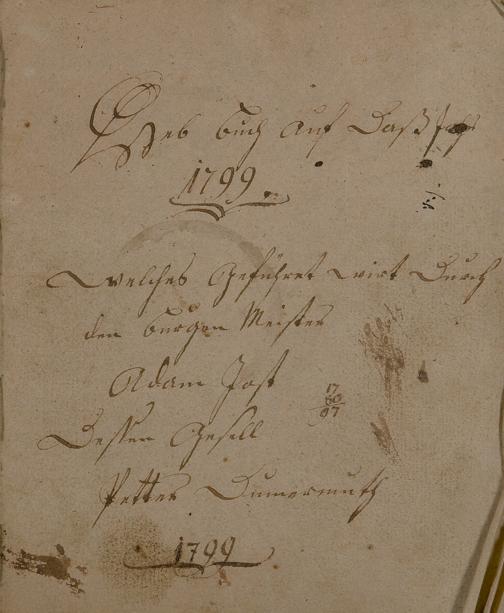 Heb buch auf daß Jahr
1799
welches geführet wirt durch
den burgen Meister
Adam Jost
17
80
97
dessen gesell
Petter Dumermuth
1799